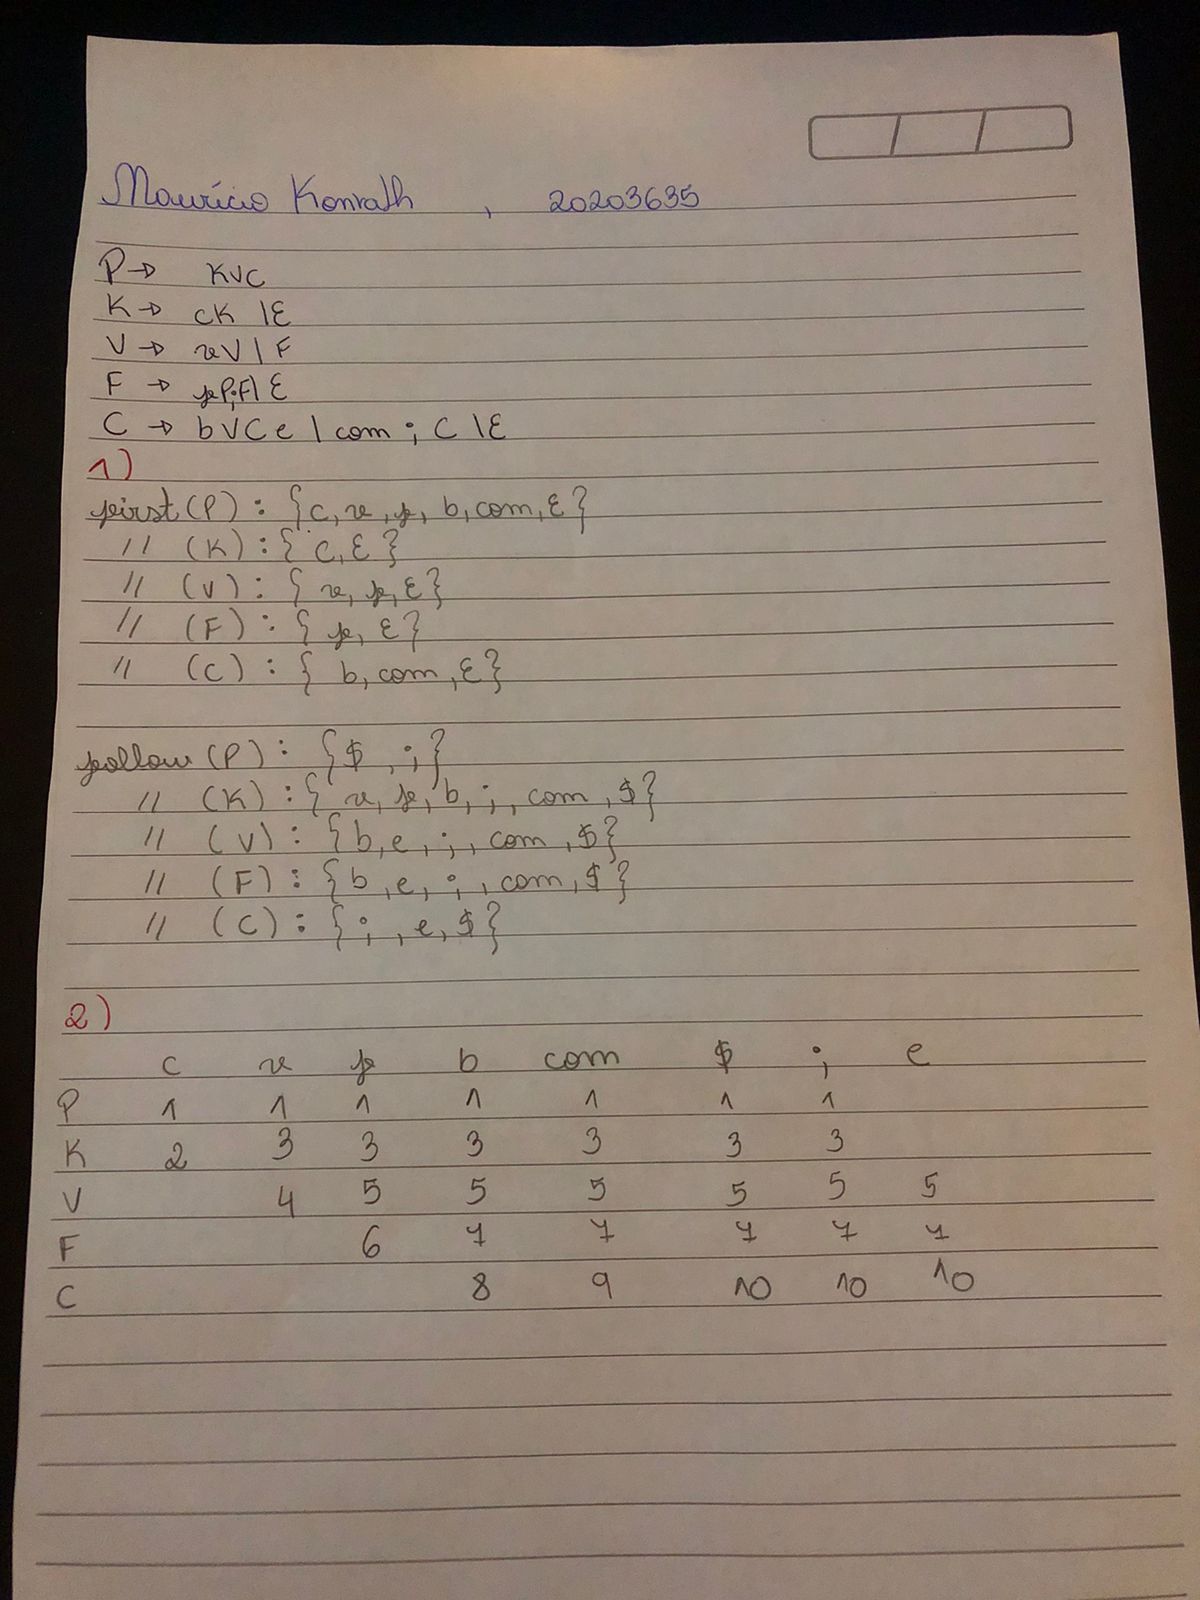 Maurício Konrath , 20203635
P → KVC
K → cK | ε
V → vV | F
F → fP;F | ε
C → bVCe | com ; C | ε
1)
first (P) : {c, v, f, b, com, ε}
// (K) : { c, ε }
// (V) : { v, f, ε}
// (F) : { f, ε }
// (C) : { b, com, ε}
follow (P) : {$ , ;}
// (K) : { v, f, b, ; , com , $}
// (V) : {b, e, ; , com , $}
// (F) : {b , e, ; , com, $ }
// (C) : { ; , e, $}
2)
c v f b com $ ; e
P 1 1 1 1 1 1 1
K 2 3 3 3 3 3 3
V 4 5 5 5 5 5 5
F 6 7 7 7 7 7
C 8 9 10 10 10